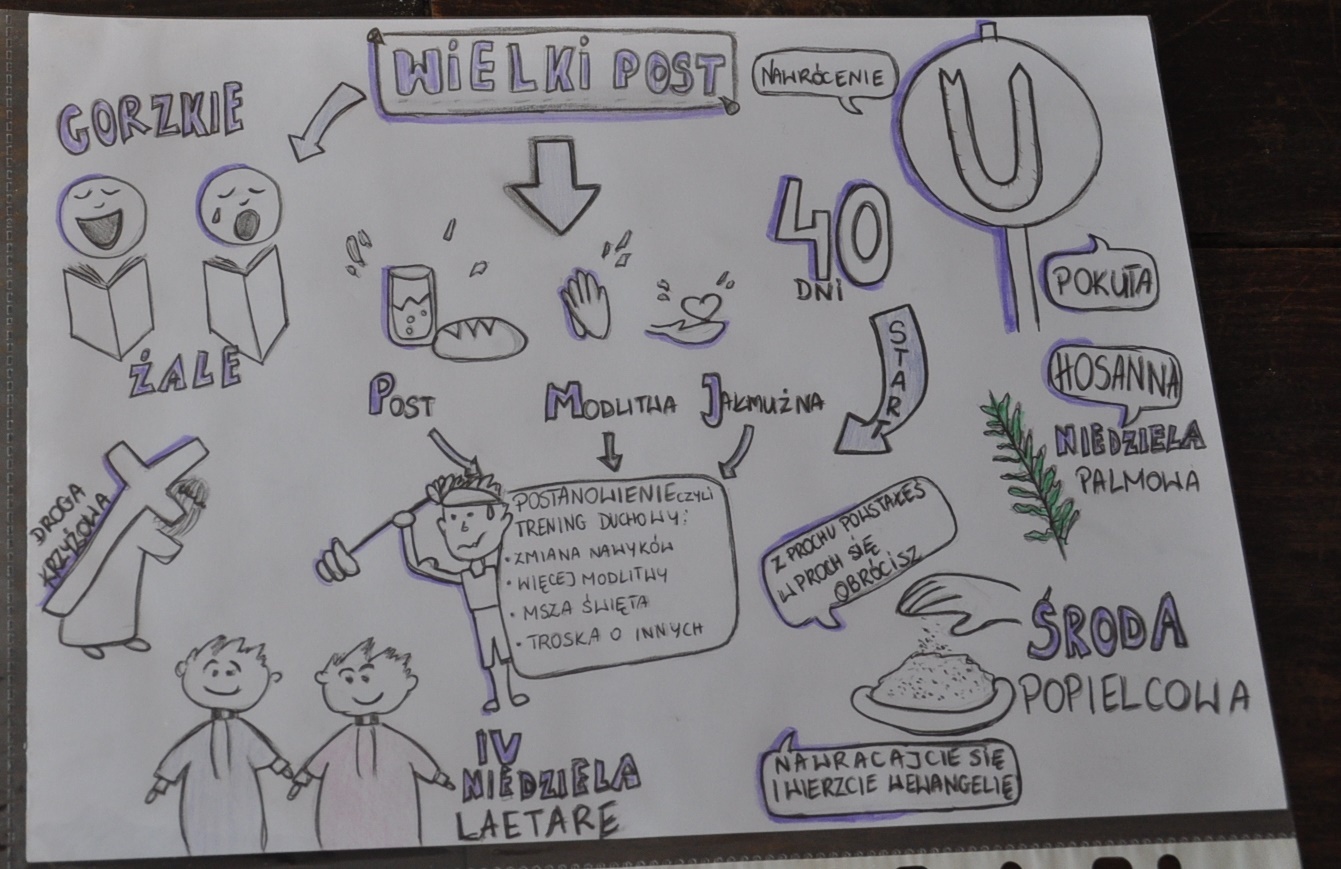 WIELKI POST
NAWRÓCENIE
U
GORZKIE
ŻALE
40
DNI
START
POKUTA
HOSANNA
NIEDZIELA
PALMOWA
POST
MODLITWA
JAŁMUŻNA
DROGA
KRZYŻOWA
POSTANOWIENIE CZYLI
TRENING DUCHOWY:
• ZMIANA NAWYKÓW
• WIĘCEJ MODLITWY
• MSZA ŚWIĘTA
• TROSKA O INNYCH
Z PROCHU POWSTAŁEŚ
W PROCH SIĘ
OBRÓCISZ
ŚRODA
POPIELCOWA
NAWRACAJCIE SIĘ
I WIERZCIE WEWANGELIĘ
IV
NIEDZIELA
LAETARE